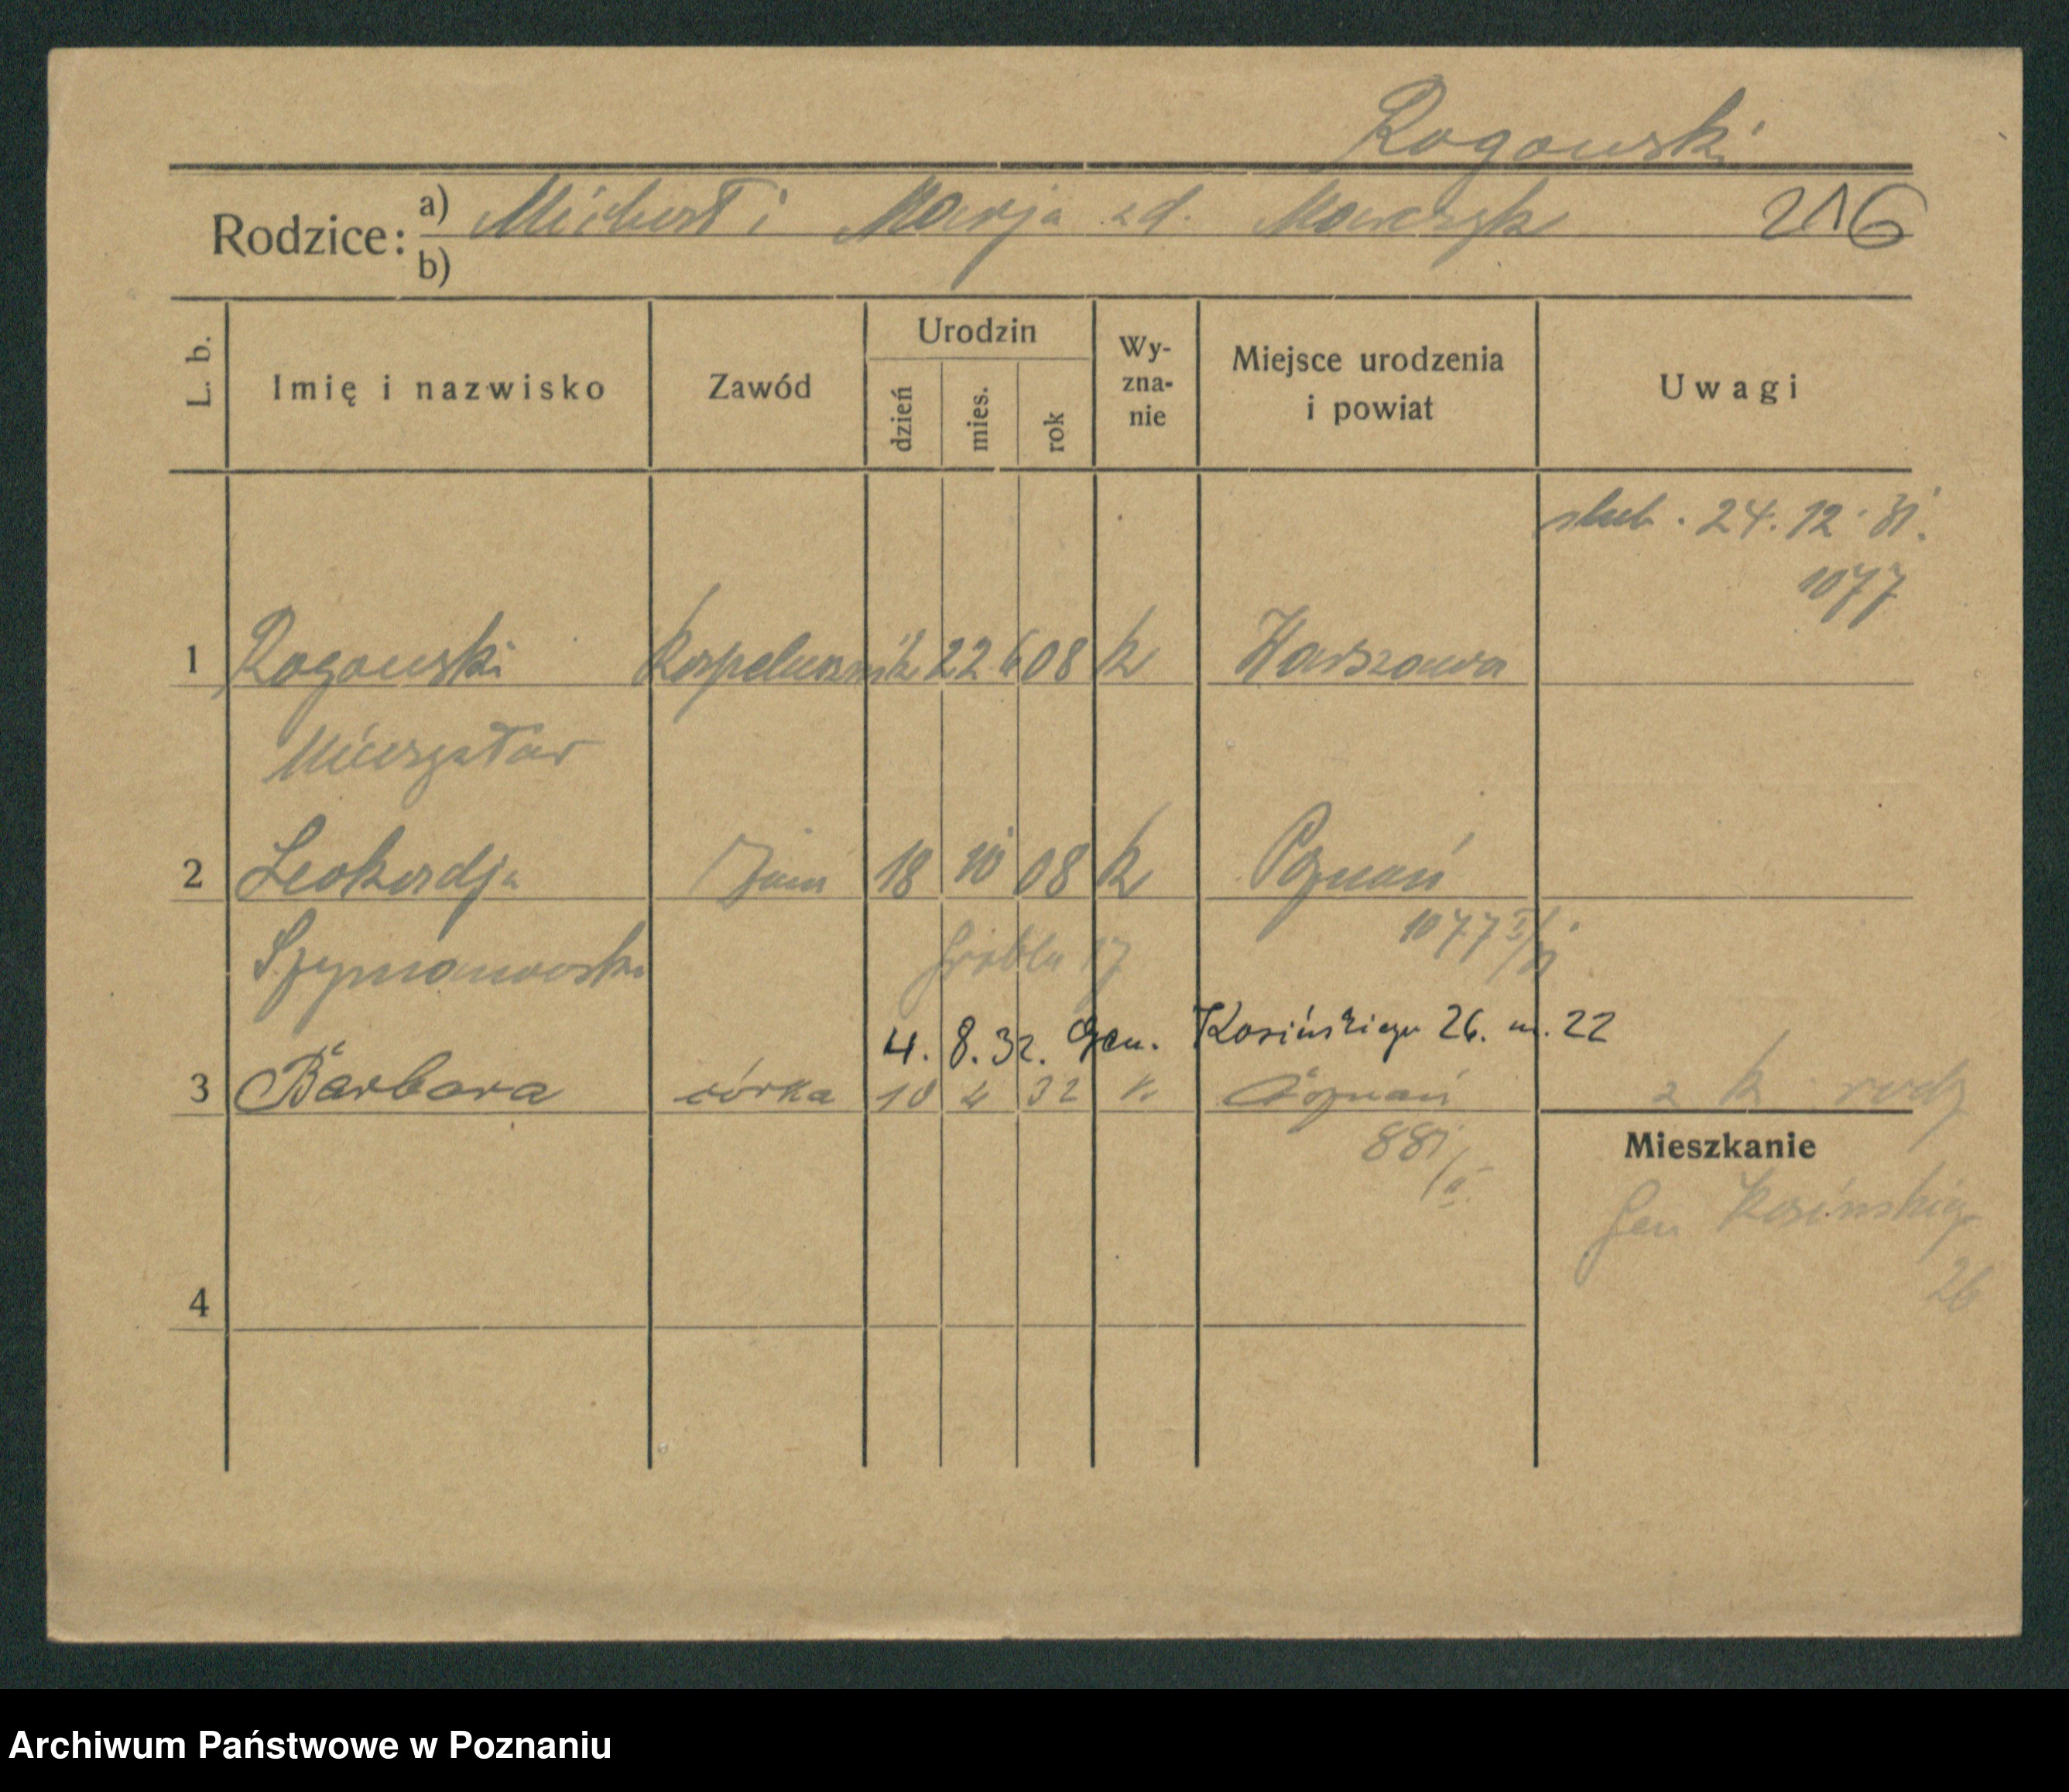 Rogowski
Rodzice: a) Michał i Marja zd. Marczyk 216
b)
L. b. Imię i nazwisko Zawód Urodzin dzień mies. rok Wy-zna-nie Miejsce urodzenia i powiat Uwagi
ślub. 24. 12. 31.
1077
1 Rogowski Kapelusznik 22 6 08 k Warszawa
Mieczysław
2 Leokardja 18 10 08 k Poznań
Szymanowska Grobla 17 1077
4. 8. 32. Gen. Kosińskiego 26. m. 22
3 Barbara córka 10 4 32 k Poznań z k rodz
881/II
Mieszkanie
Gen Kosińskiego
26
4
Archiwum Państwowe w Poznaniu